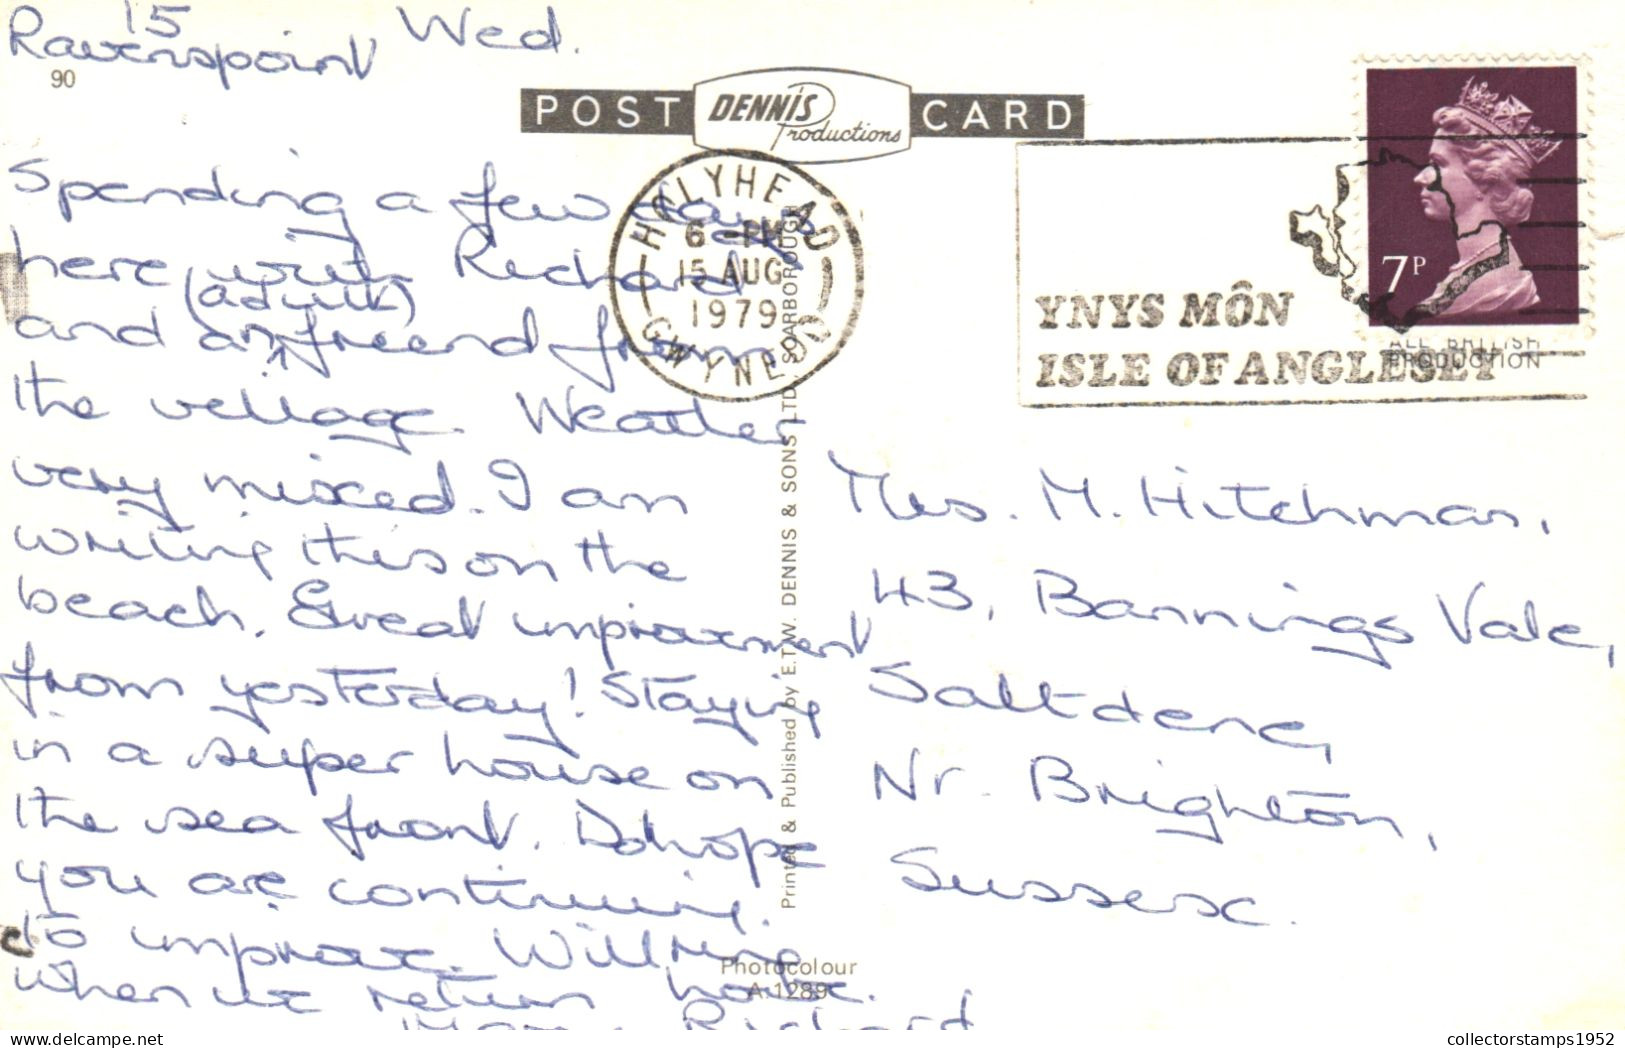 15 Wed.
Ravenspoint
90
POST DENNIS Productions CARD
Spending a few days
here with Richard
(adult)
and an friend from
the village. Weather
very mixed. I am
writing this on the
beach. Great improvement
from yesterday! Staying
in a super house on
the sea front. Do hope
you are continuing
to improve. Will ring
when we return home.
Richard
HOLYHEAD
6 - PM
15 AUG
1979
GWYNEDD
YNYS MÔN
ISLE OF ANGLESEY
7P
ALL BRITISH
PRODUCTION
Printed & Published by E.T.W. DENNIS & SONS LTD., SCARBOROUGH
Mrs. M. Hitchman,
43, Bannings Vale,
Saltdene,
Nr. Brighton,
Sussex.
Photocolour
A.1289
collectorstamps1952